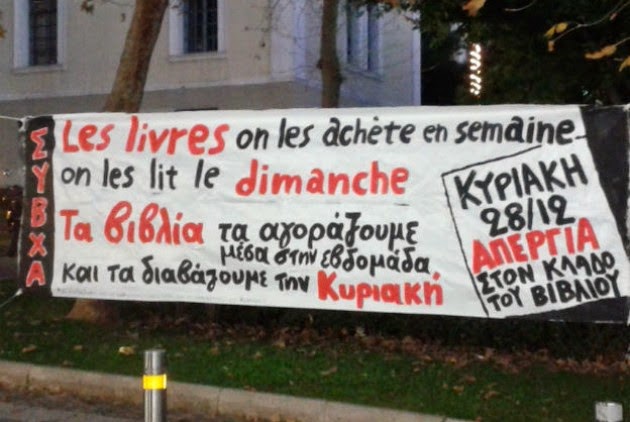 ΣΥΒΧΑ
Les livres on les achète en semaine...
on les lit le dimanche
Τα βιβλία τα αγοράζουμε
μέσα στην εβδομάδα
και τα διαβάζουμε την Κυριακή
ΚΥΡΙΑΚΗ
28/12
ΑΠΕΡΓΙΑ
ΣΤΟΝ ΚΛΑΔΟ
ΤΟΥ ΒΙΒΛΙΟΥ